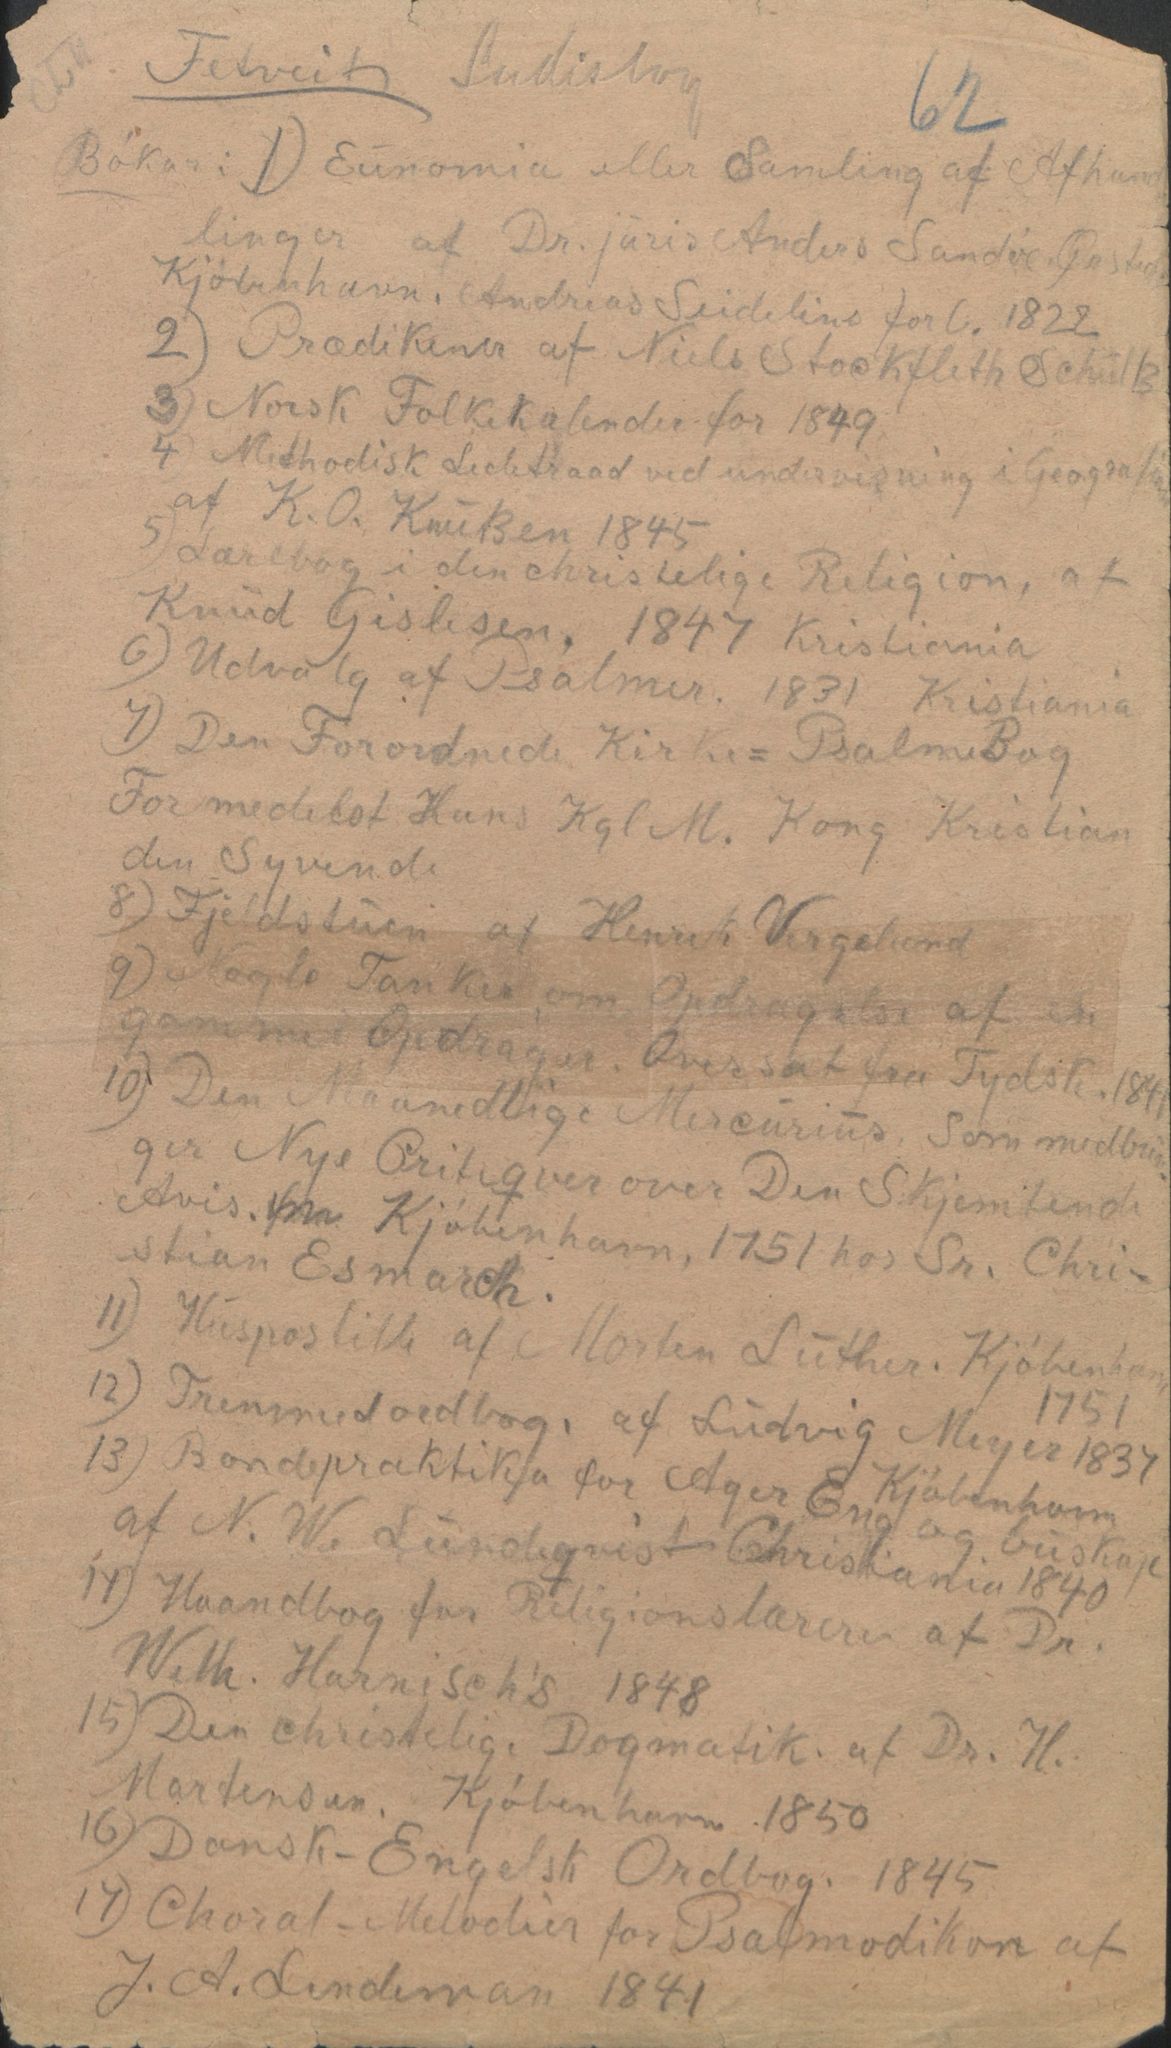 Fetveit
62
Bökar: 1) Eunomia eller Samling af Afhand
linger af Dr. juris Anders Sandöe Ørsted
Kjöbenhavn. Andreas Seidelins forl. 1822
2) Prædikener af Niels Stockfleth Schultz
3) Norsk Folkekalender for 1849
4 Methodisk Ledetraad ved undervisning i Geografien
af K.O. Knutzen 1845
5) Lærebog i den christelige Religion, af
Knud Gislesen, 1847 Kristiania
6) Udvalg af Psalmer. 1831 Kristiania
7) Den Forordnede Kirke= PsalmeBog
Formedelst Hans Kgl M. Kong Kristian
den Syvende
8) Fjeldstuen af Henrik Vergeland
9) Nogle Tanker om Opdragelse af en
gammel Opdrager. Oversat fra Tydsk. 1841
10) Den Maanedlige Mercurius, Som medbrin
ger Nye Critiqver over Den Skjemtende
Avis. Kjöbenhavn, 1751 hos Sr. Chri-
stian Esmarch.
11) Huspostille af Morten Luther. Kjöbenhavn
1751
12) Fremmedordbog. af Ludvig Meyer 1837
Kjöbenhavn
13) Bondepraktika for Ager Eng og buskap
af N. W. Lundequist Christiania 1840
14) Haandbog for Religionslærere af Dr.
Wilh. Harnisch's 1848
15) Den christelige Dogmatik. af Dr. H.
Martensen. Kjöbenhavn. 1850
16) Dansk-Engelsk Ordbog. 1845
17) Choral-Melodier for Psalmodikon af
J. A. Lindeman 1841